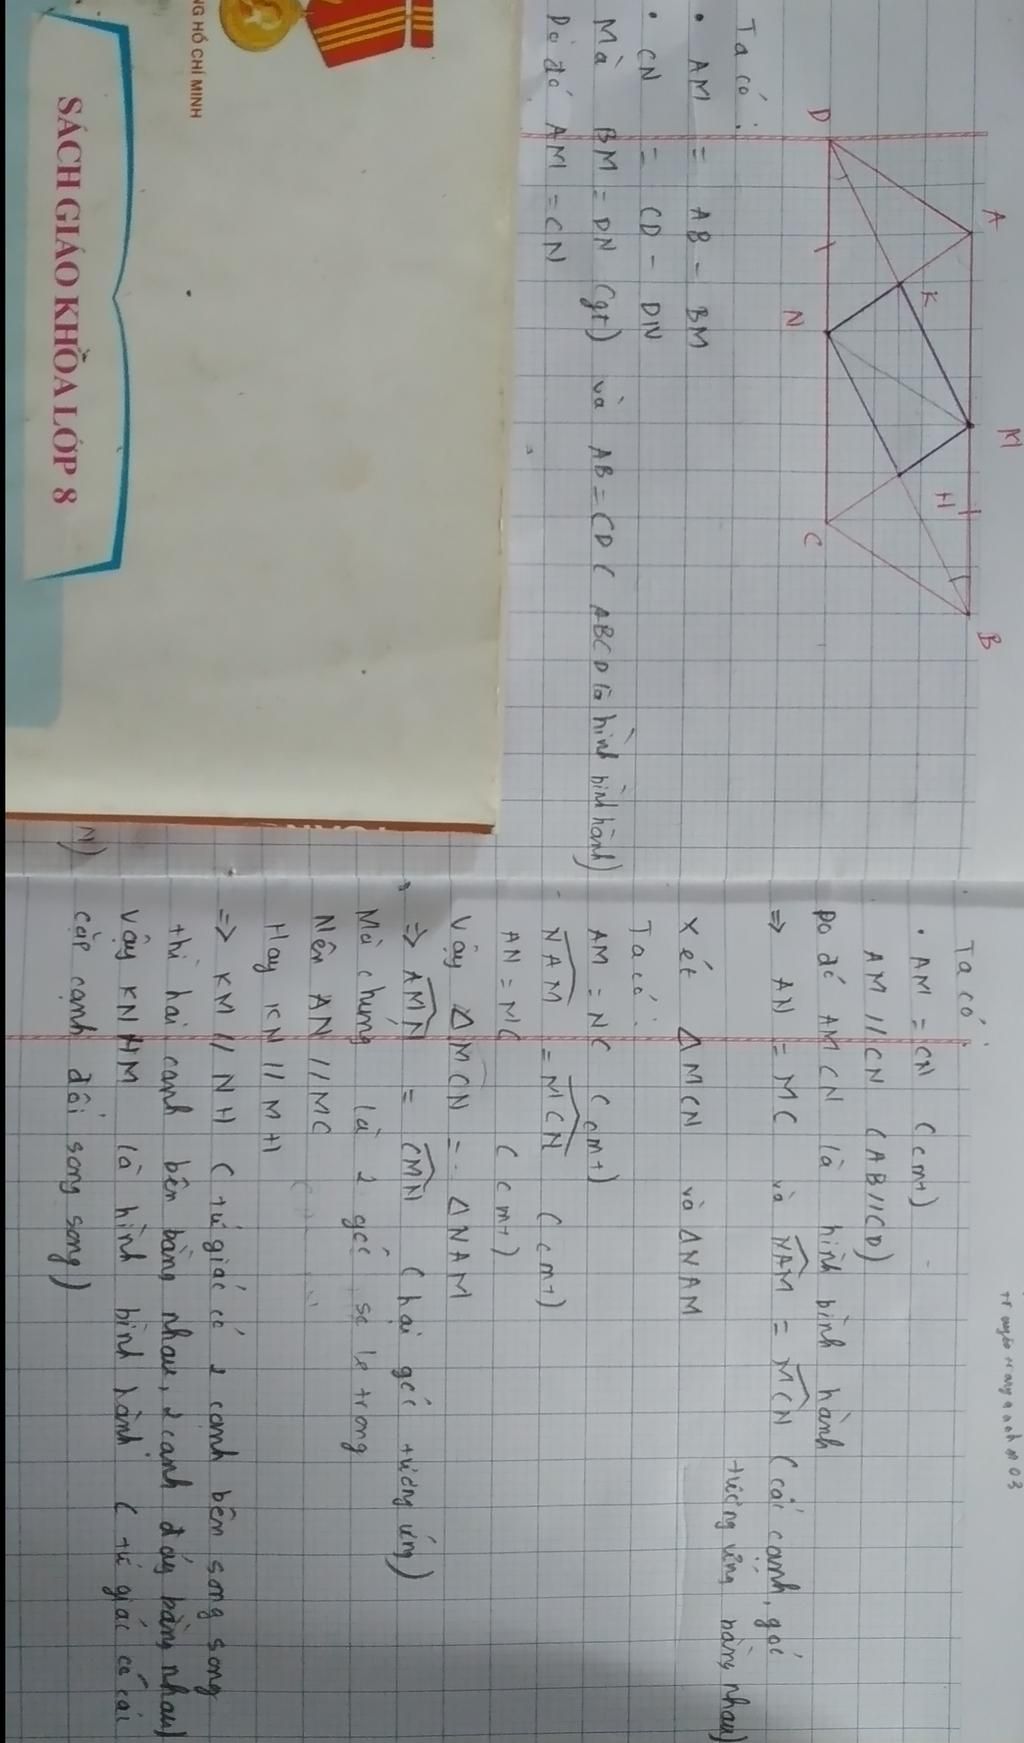 A
M
B
K
H
D
N
C
Ta có:
• AM = AB - BM
• CN = CD - DN
Mà BM = DN (gt) và AB = CD ( ABCD là hình bình hành)
Do đó AM = CN
NG HỒ CHÍ MINH
SÁCH GIÁO KHOA LỚP 8
03
Ta có:
• AM = CN (cmt)
AM // CN (AB // CD)
Do đó AMCN là hình bình hành
=> AN = MC và NAM = MCN (các cạnh, góc
tương ứng bằng nhau)
Xét Δ MCN và Δ NAM
Ta có:
AM = NC (cmt)
NAM = MCN (cmt)
AN = MC (cmt)
Vậy Δ MCN = Δ NAM
=> AMN = CMN (hai góc tương ứng)
Mà chúng là 2 góc so le trong
Nên AN // MC
Hay KN // MH
=> KM // NH ( tứ giác có 2 cạnh bên song song
thì hai cạnh bên bằng nhau, 2 cạnh đáy bằng nhau)
Vậy KNHM là hình bình hành ( tứ giác có các
cặp cạnh đối song song)